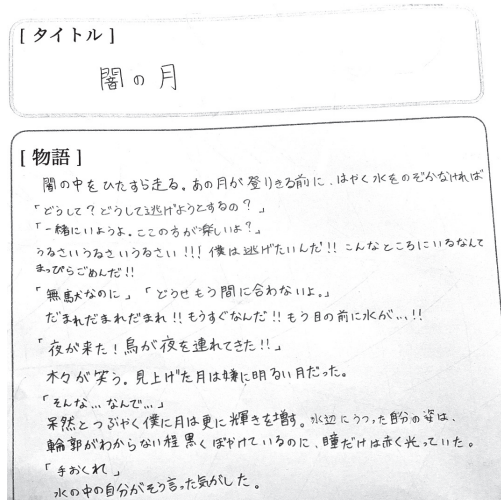 [ タイトル ]
闇の月
[ 物語 ]
闇の中をひたすら走る。あの月が登りきる前に、はやく水をのぞかなければ
「どうして?どうして逃げようとするの?」
「一緒にいようよ。ここの方が楽しいよ?」
うるさいうるさいうるさい!!!僕は逃げたいんだ!!こんなところにいるなんて
まっぴらごめんだ!!
「無駄なのに」「どうせもう間に合わないよ。」
だまれだまれだまれ!!もうすぐなんだ!!もう目の前に水が...!!
「夜が来た!鳥が夜を連れてきた!!」
木々が笑う。見上げた月は嫌に明るい月だった。
「そんな...なんで...」
呆然とつぶやく僕に月は更に輝きを増す。水辺にうつった自分の姿は、
輪郭がわからない程黒くぼやけているのに、瞳だけは赤く光っていた。
「手おくれ」
水の中の自分がそう言った気がした。